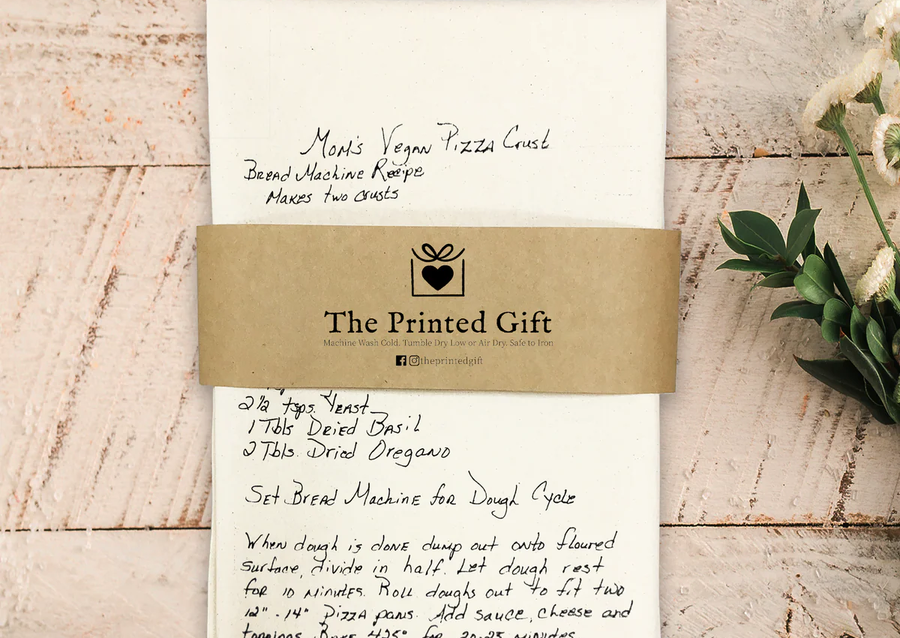 Mom's Vegan Pizza Crust
Bread Machine Recipe
Makes two crusts
The Printed Gift
Machine Wash Cold. Tumble Dry Low or Air Dry. Safe to Iron
theprintedgift
2 1/2 tsps. Yeast
1 Tbls Dried Basil
2 Tbls. Dried Oregano
Set Bread Machine for Dough Cycle
When dough is done dump out onto floured
surface, divide in half. Let dough rest
for 10 minutes. Roll doughs out to fit two
12" - 14" Pizza pans. Add sauce, cheese and
toppings. Bake 425° for 20-25 minutes